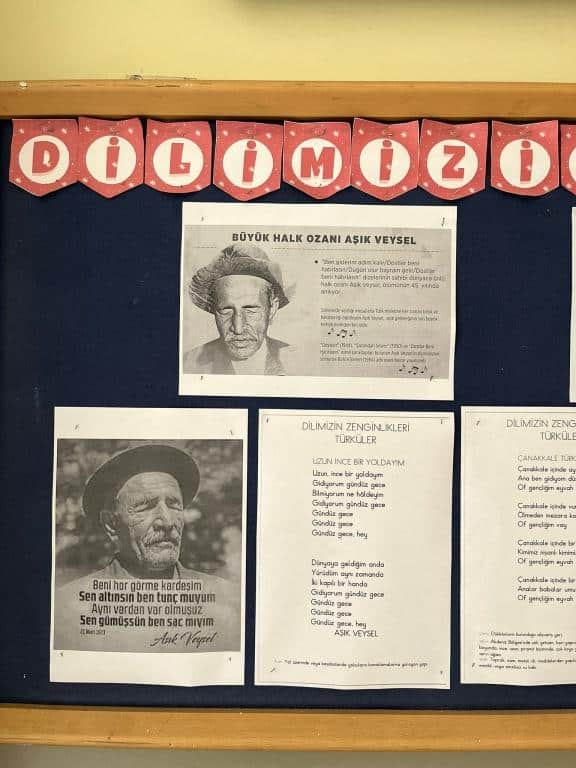 DİLİMİZİ
BÜYÜK HALK OZANI AŞIK VEYSEL
"Ben giderim adım kalır/Dostlar beni
hatırlasın/Düğün olur bayram gelir/Dostlar
beni hatırlasın" dizelerinin sahibi, dünyaca ünlü
halk ozanı Aşık Veysel, ölümünün 45. yılında
anılıyor.
Beni hor görme kardeşim
Sen altınsın ben tunç muyum
Aynı vardan var olmuşuz
Sen gümüşsün ben sac mıyım
21 Mart 1973
Aşık Veysel
DİLİMİZİN ZENGİNLİKLERİ
TÜRKÜLER
UZUN İNCE BİR YOLDAYIM
Uzun, ince bir yoldayım
Gidiyorum gündüz gece
Bilmiyorum ne hâldeyim
Gidiyorum gündüz gece
Gündüz gece
Gündüz gece
Gündüz gece, hey
Dünyaya geldiğim anda
Yürüdüm aynı zamanda
İki kapılı bir handa
Gidiyorum gündüz gece
Gündüz gece
Gündüz gece
Gündüz gece, hey
AŞIK VEYSEL
DİLİMİZİN ZENG
TÜRKÜLE
ÇANAKKALE TÜRK
Çanakkale içinde ay
Ana ben gidiyom dü
Of gençliğim eyvah
Çanakkale içinde vu
Ölmeden mezara ko
Of gençliğim vay
Çanakkale içinde bir
Kimimiz nişanlı kimimi
Of gençliğim eyvah
Çanakkale içinde bir
Analar babalar umu
Of gençliğim eyvah